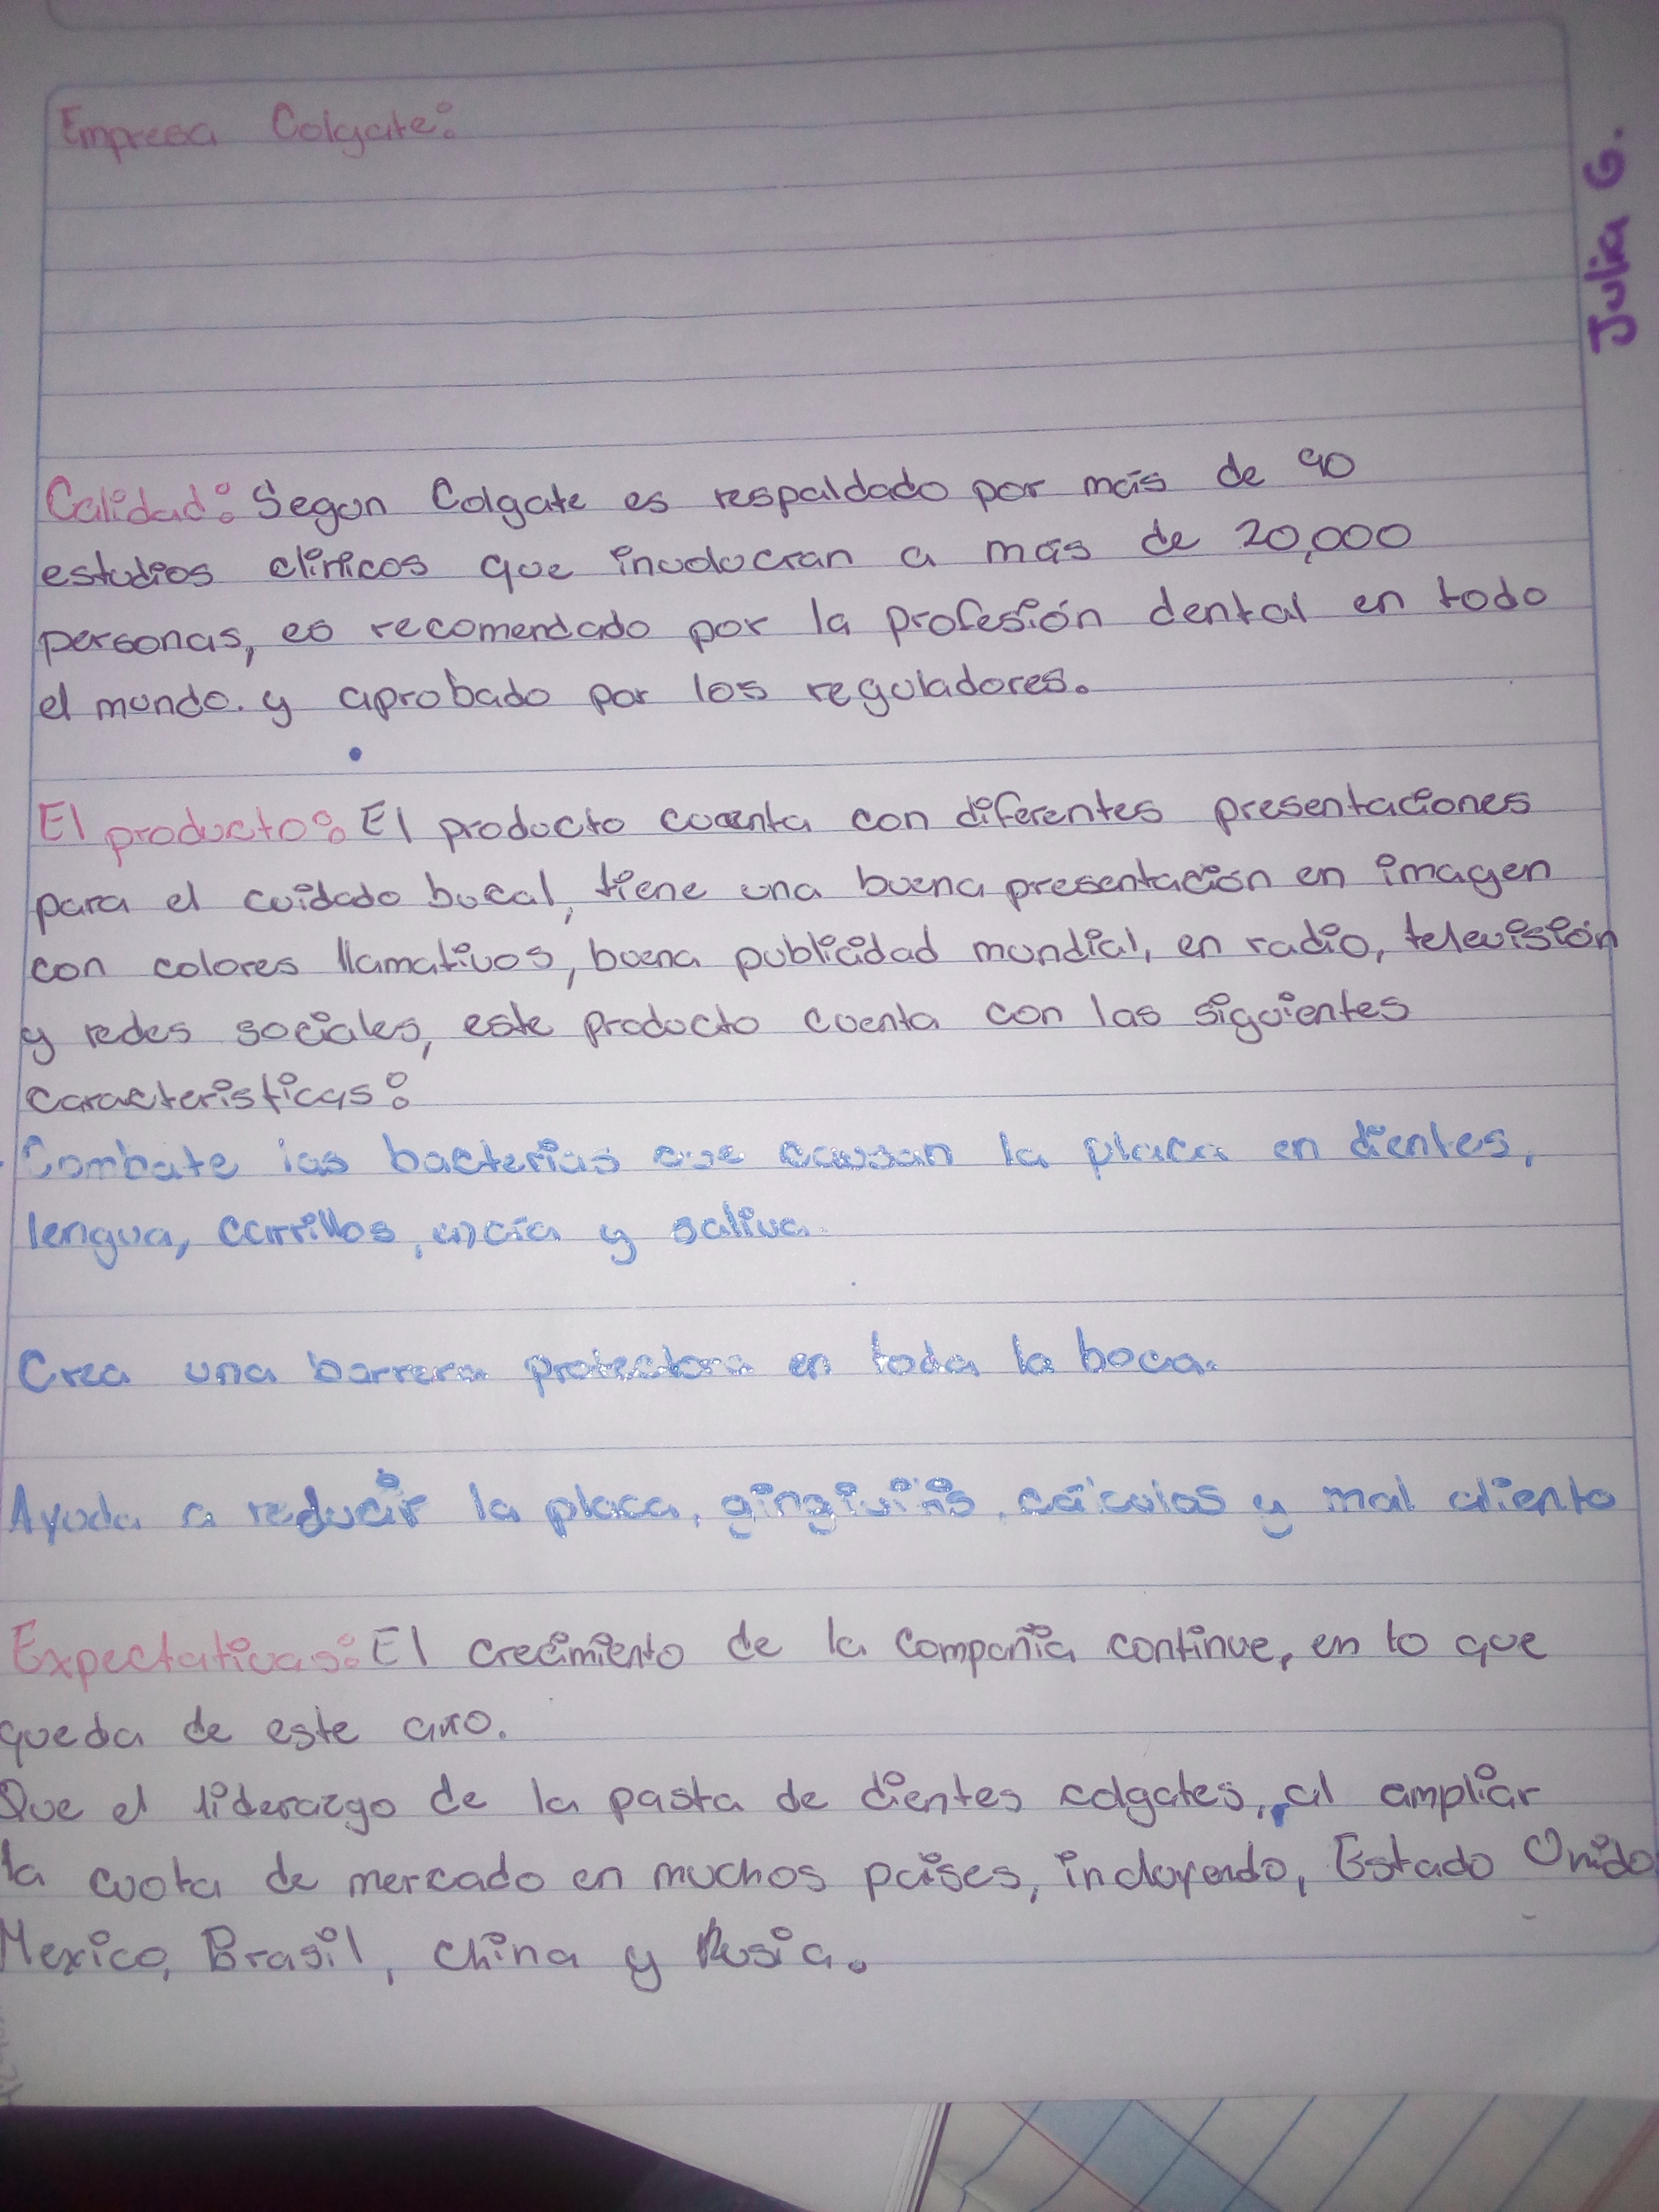 Empresa Colgate:
Julia G.
Calidad: Segun Colgate es respaldado por más de 90
estudios clinicos que involucran a más de 20,000
personas, es recomendado por la profesión dental en todo
el mundo. y aprobado por los reguladores.
El producto: El producto cuenta con diferentes presentaciones
para el cuidado bucal, tiene una buena presentación en imagen
con colores llamativos, buena publicidad mundial, en radio, televisión
y redes sociales, este producto cuenta con las siguientes
caracteristicas:
Combate las bacterias que causan la placa en dientes,
lengua, carrillos, encía y saliva.
Crea una barrera protectora en toda la boca.
Ayuda a reducir la placa, gingivitis, cálculos y mal aliento
Expectativas: El crecimiento de la compañia continue, en lo que
queda de este año.
Que el liderazgo de la pasta de dientes colgates, al ampliar
la cuota de mercado en muchos paises, incluyendo, Estado Unido
Mexico, Brasil, China y Rusia.